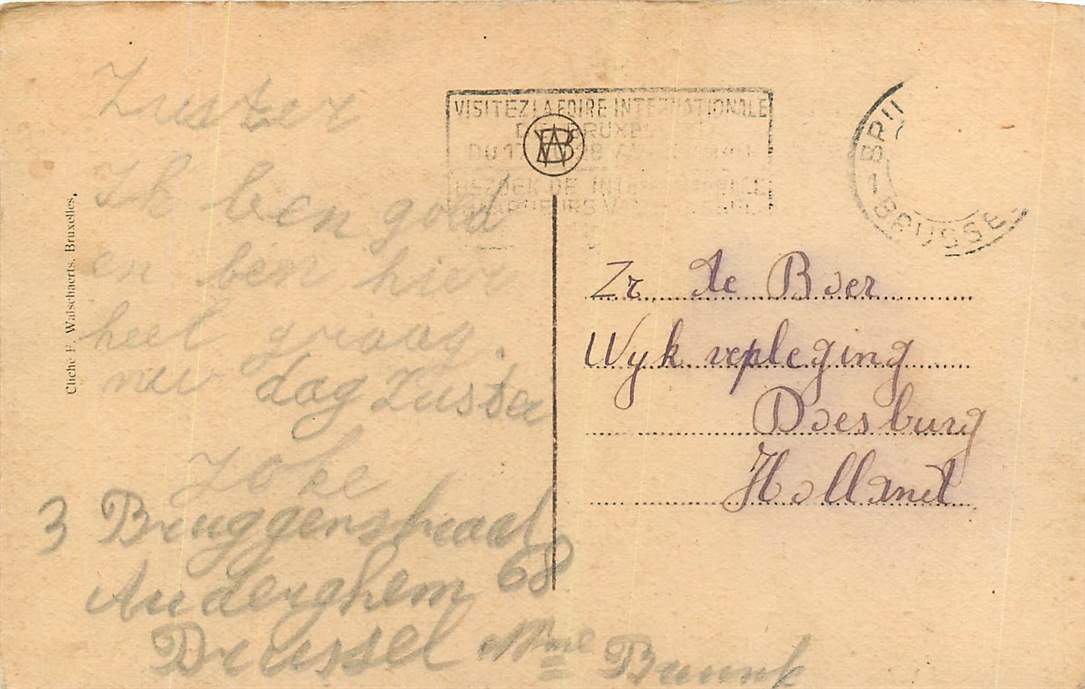 Zuster
Ik ben goed
en ben hier
heel graag.
nu dag Zuster
Zoke
3 Bruggenstraat
Auderghem 68
Brussel Mme
Cliché E. Walschaerts, Bruxelles.
VISITEZ LA FOIRE INTERNATIONALE
DE BRUXELLES
DU 17
BEZOEK DE INTERNATIONALE
WB
BRU
1
BRUSSE
Zr. de Boer
Wyk verpleging
Doesburg
Holland